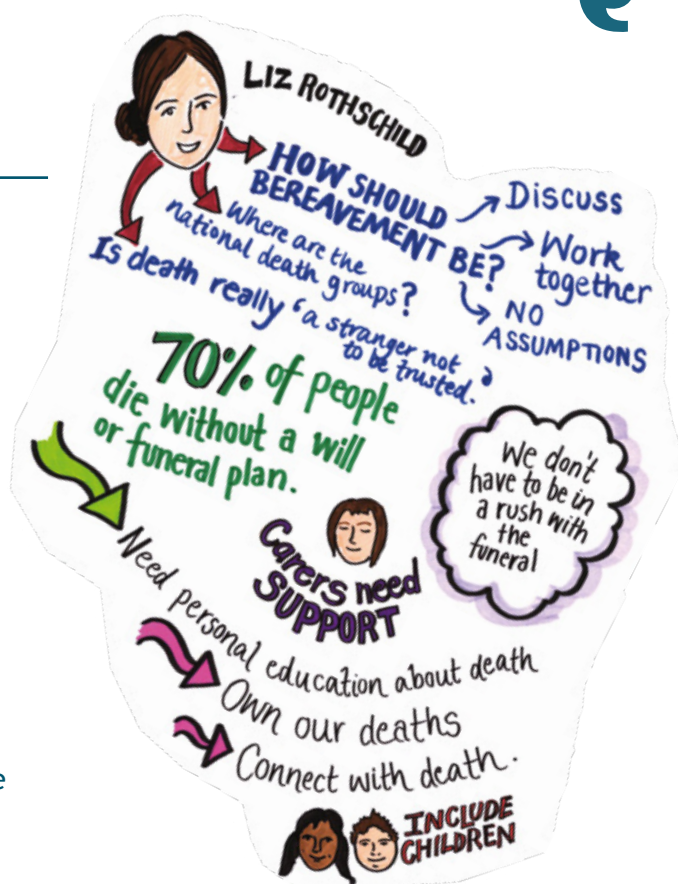 LIZ ROTHSCHILD
HOW SHOULD
BEREAVEMENT BE?
Discuss
Work
together
NO
ASSUMPTIONS
Where are the
national death groups?
Is death really 'a stranger not
to be trusted.'
70% of people
die without a will
or funeral plan.
We don't
have to be in
a rush with
the
funeral
Carers need
SUPPORT
Need personal education about death
Own our deaths
Connect with death.
INCLUDE
CHILDREN
e